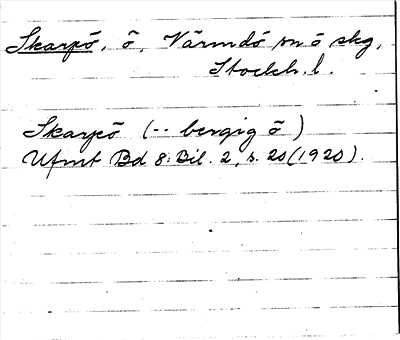 Skarpö, ö, Värmdö sn ö skg,
Stockh. l.
Skarpö (-- bergig ö)
Ufmt Bd 8: Bil. 2, s. 20 (1920).